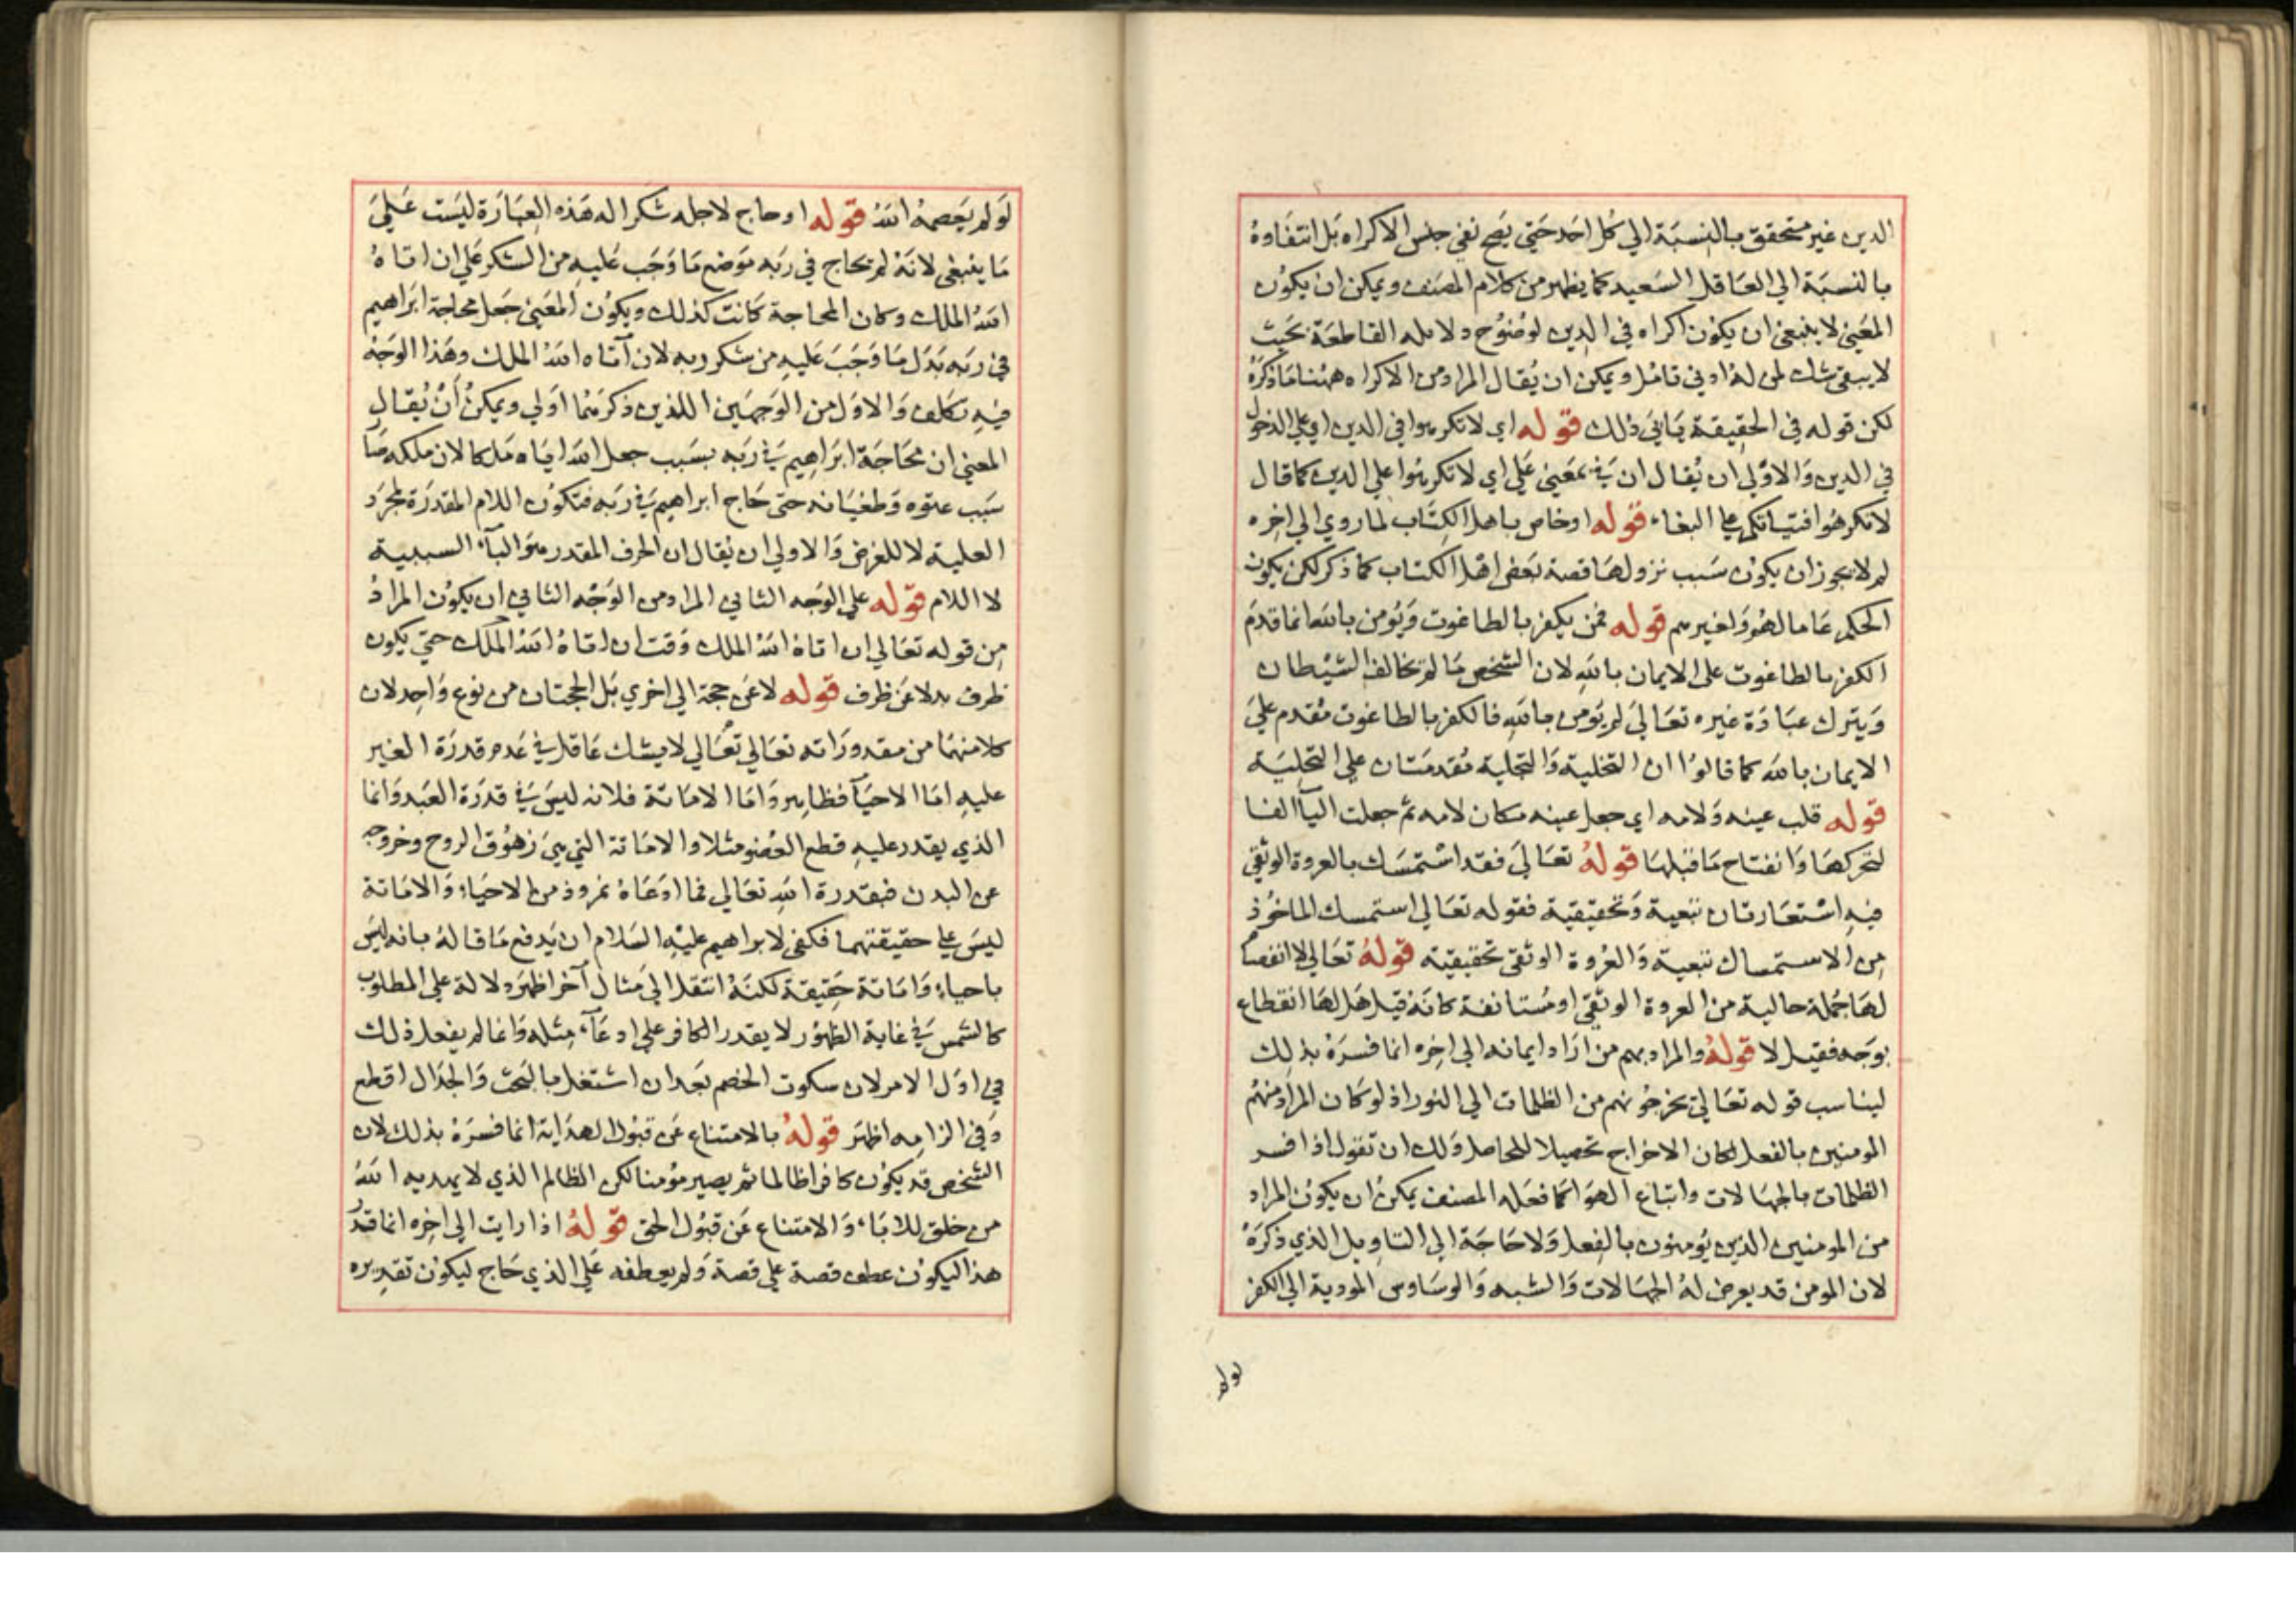 الدين غير متحقق بالنسبة الي كل احد حتي يصح نفي جنس الاكراه بل انتفاوه
بالنسبة الي العاقل السعيد كما يظهر من كلام المصنف ويمكن ان يكون
المعني لا ينبغي ان يكون اكراه في الدين لوضوح دلايله القاطعة بحيث
لا يبقي شك لمن له ادني تامل ويمكن ان يقال المراد من الاكراه ههنا ما ذكره
لكن قوله في الحقيقة يابي ذلك قوله اي لا تكرهوا في الدين اي علي الدخول
في الدين والاولي ان يقال ان في بمعني علي اي لا تكرهوا علي الدين كما قال
لا تكرهوا فتياتكم علي البغاء قوله او خاص باهل الكتاب لما روي الي اخره
لم لا يجوز ان يكون سبب نزولها قصة بعض اهل الكتاب كما ذكر لكن يكون
الحكم عاما لهم ولغيرهم قوله فمن يكفر بالطاغوت ويومن بالله انما قدم
الكفر بالطاغوت علي الايمان بالله لان الشخص ما لم يخالف الشيطان
ويترك عبادة غيره تعالي لم يومن بالله فالكفر بالطاغوت مقدم علي
الايمان بالله كما قالوا ان التخلية والتجلية مقدمتان علي التحلية
قوله قلب عينه ولامه اي جعل عينه مكان لامه ثم جعلت اليآ الفا
لتحركها وانفتاح ما قبلها قوله تعالي فقد استمسك بالعروة الوثقي
فيه استعارتان تبعية وتحقيقية فقوله تعالي استمسك الماخوذ
من الاستمساك تبعية والعروة الوثقي تحقيقية قوله تعالي لا انفصام
لها جملة حالية من العروة الوثقي او مستانفة كانه قيل هل لها انقطاع
بوجه فقيل لا قوله والمراد بهم من اراد ايمانه الي اخره انما فسره بذلك
ليناسب قوله تعالي يخرجونهم من الظلمات الي النور اذ لو كان المراد منهم
المومنين بالفعل لكان الاخراج تحصيلا للحاصل ولك ان تقول اذا فسر
الظلمات بالجهالات واتباع الهوا كما فعله المصنف يمكن ان يكون المراد
من المومنين الذين يومنون بالفعل ولا حاجة الي التاويل الذي ذكره
لان المومن قد يعرض له الجهالات والشبه والوساوس المودية الي الكفر
لولم
لو لم يعصمه الله قوله او حاج لاجله شكرا له هذه العبارة ليست علي
ما ينبغي لانه لم يحاج في ربه موضع ما وجب عليه من الشكر علي ان اتاه
الله الملك وكان المحاجة كانت كذلك ويكون المعني جعل محاجة ابراهيم
في ربه بدل ما وجب عليه من شكر ربه لان آتاه الله الملك وهذا الوجه
فيه تكلف والاول من الوجهين اللذين ذكرهما اولي ويمكن أن يقال
المعني ان محاجة ابراهيم في ربه بسبب جعل الله اياه ملكا لان ملكه صا
سبب عتوه وطغيانه حتي حاج ابراهيم في ربه فتكون اللام المقدرة لمجرد
العلية لا للغرض والاولي ان يقال ان الحرف المقدر هو البآء السببية
لا اللام قوله علي الوجه الثاني المراد من الوجه الثاني ان يكون المراد
من قوله تعالي ان اتاه الله الملك وقت ان اتاه الله الملك حتي يكون
ظرف بدلا عن ظرف قوله لا عن حجة الي اخري بل الحجتان من نوع واحد لان
كلا منهما من مقدوراته تعالي تعالي لا يشك عاقل في عدم قدرة الغير
عليه اما الاحيآ فظاهر واما الاماتة فلانه ليس في قدرة العبد وانما
الذي يقدر عليه قطع العضو مثلا والاماتة التي هي زهوق الروح وخروجه
عن البدن فبقدرة الله تعالي فما ادعاه نمروذ من الاحياء والاماتة
ليس علي حقيقتهما فكفي لابراهيم عليه السلام ان يدفع ما قاله بانه ليس
باحياء واماتة حقيقة لكنه انتقل الي مثال آخر اظهر دلالة علي المطلوب
كالشمس في غاية الظهور لا يقدر الكافر علي ادعآء مثله وانما لم يفعل ذلك
في اول الامر لان سكوت الخصم بعد ان اشتغل بالبحث والجدال اقطع
وفي الزامه اظهر قوله بالامتناع عن قبول الهداية انما فسره بذلك لان
الشخص قد يكون كافرا ظالما ثم يصير مومنا لكن الظالم الذي لا يهديه الله
من خلق للاباء والامتناع عن قبول الحق قوله اذا رايت الي اخره انما قدر
هذا ليكون عطف قصة علي قصة ولم يعطفه علي الذي حاج ليكون تقديره